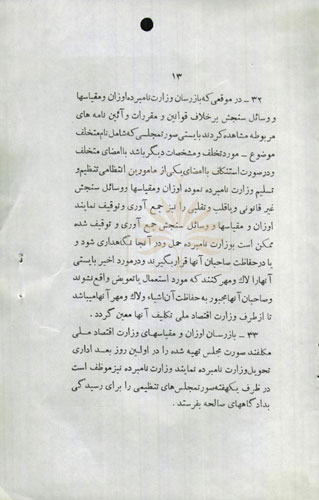 ۱۳
۳۲ ــ در موقعی که بازرسان وزارت نامبرده اوزان و مقیاسها
و وسائل سنجش بر خلاف قوانین و مقررات و آئین نامه های
مربوطه مشاهده کردند بایستی صورتمجلسی که شامل نام متخلف
موضوع ــ مورد تخلف و مشخصات دیگر باشد با امضای متخلف
و در صورت استنکاف با امضای یکی از مامورین انتظامی تنظیم و
تسلیم وزارت نامبرده نموده اوزان و مقیاسها و وسائل سنجش
غیر قانونی و یا قلب و تقلبی را نیز جمع آوری و توقیف نمایند
و اوزان و مقیاسها و وسائل سنجش جمع آوری و توقیف شده
ممکن است بوزارت نامبرده حمل و در آنجا نگاهداری شود و
یا در حفاظت صاحبان آنها قرار بگیرند و در مورد اخیر بایستی
آنها را لاک و مهر کنند که مورد استعمال یا تعویض واقع نشوند
و صاحبان آنها مجبور به حفاظت آن اشیاء و لاک و مهر آنها میباشند
تا از طرف وزارت اقتصاد ملی تکلیف آنها معین گردد .
۳۳ ــ بازرسان اوزان و مقیاسهای وزارت اقتصاد ملی
مکلفند صورت مجلس تهیه شده را در اولین روز بعد اداری
تحویل وزارت نامبرده نمایند وزارت نامبرده نیز موظف است
در ظرف یکهفته صورتمجلس های تنظیمی را برای رسیدگی
بدادگاههای صالحه بفرستد .